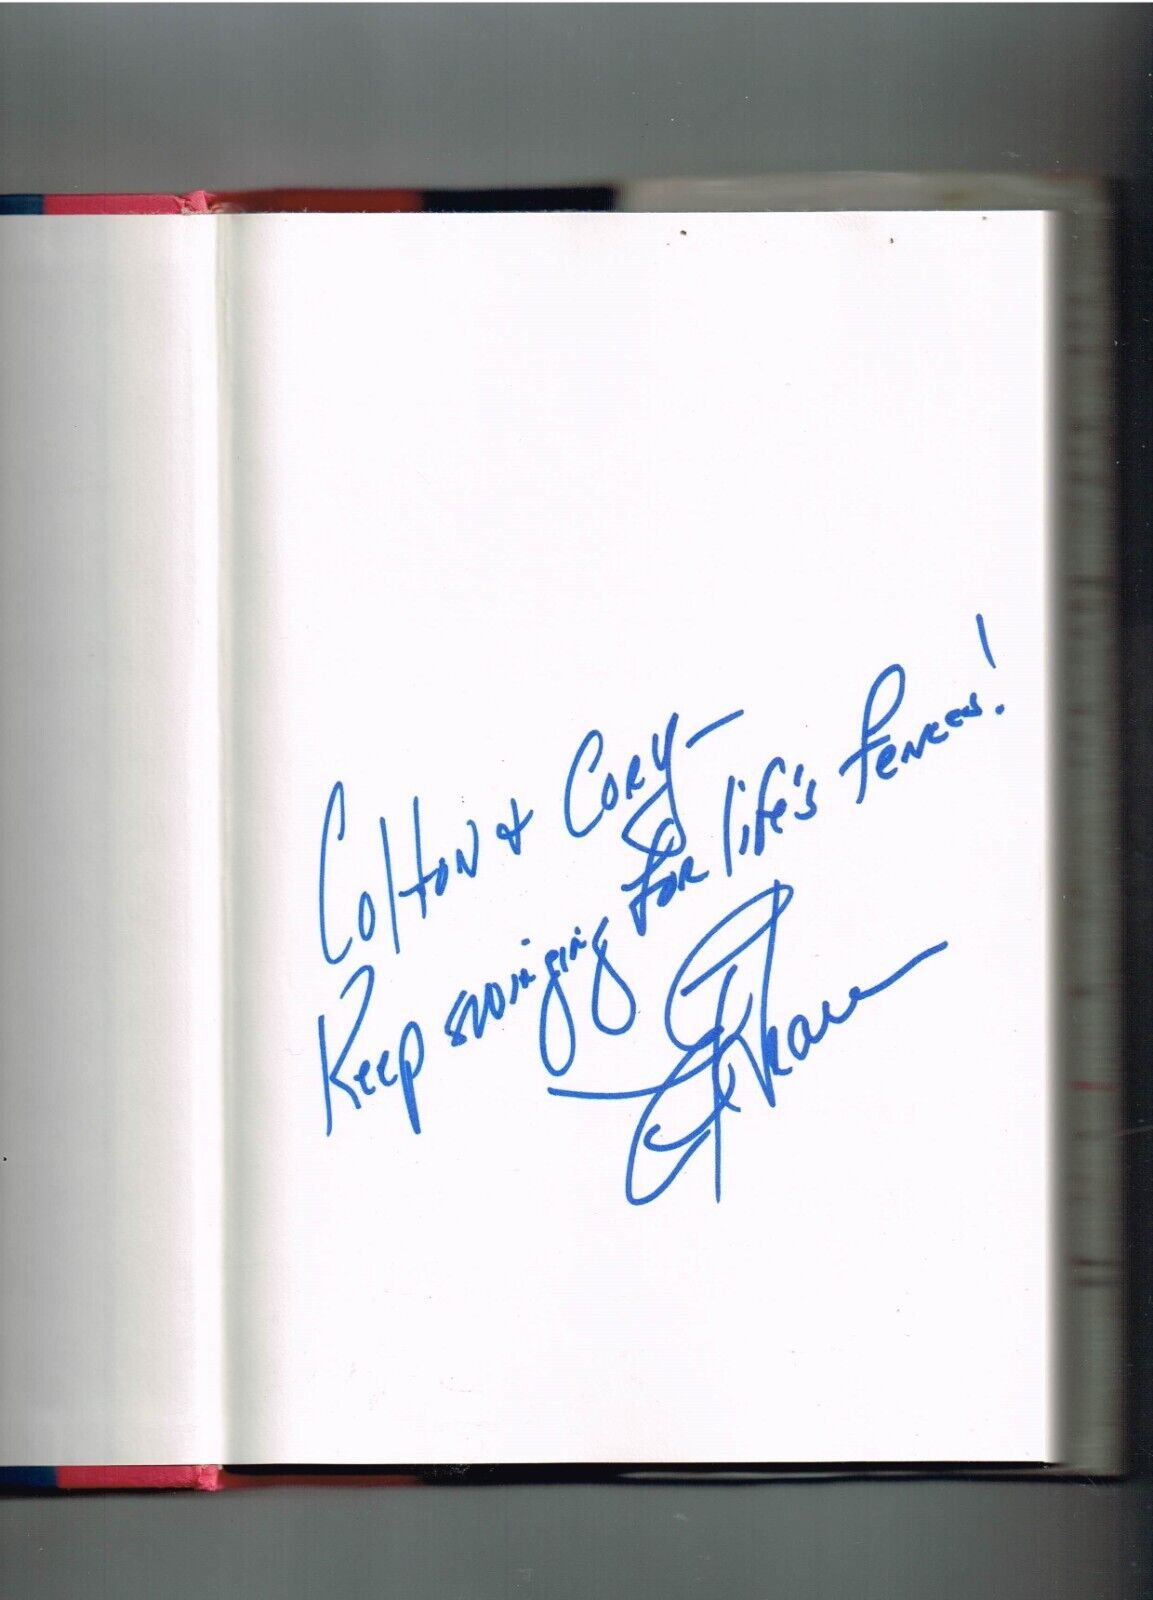 Colton & Cory—
Keep swinging for life's fences!